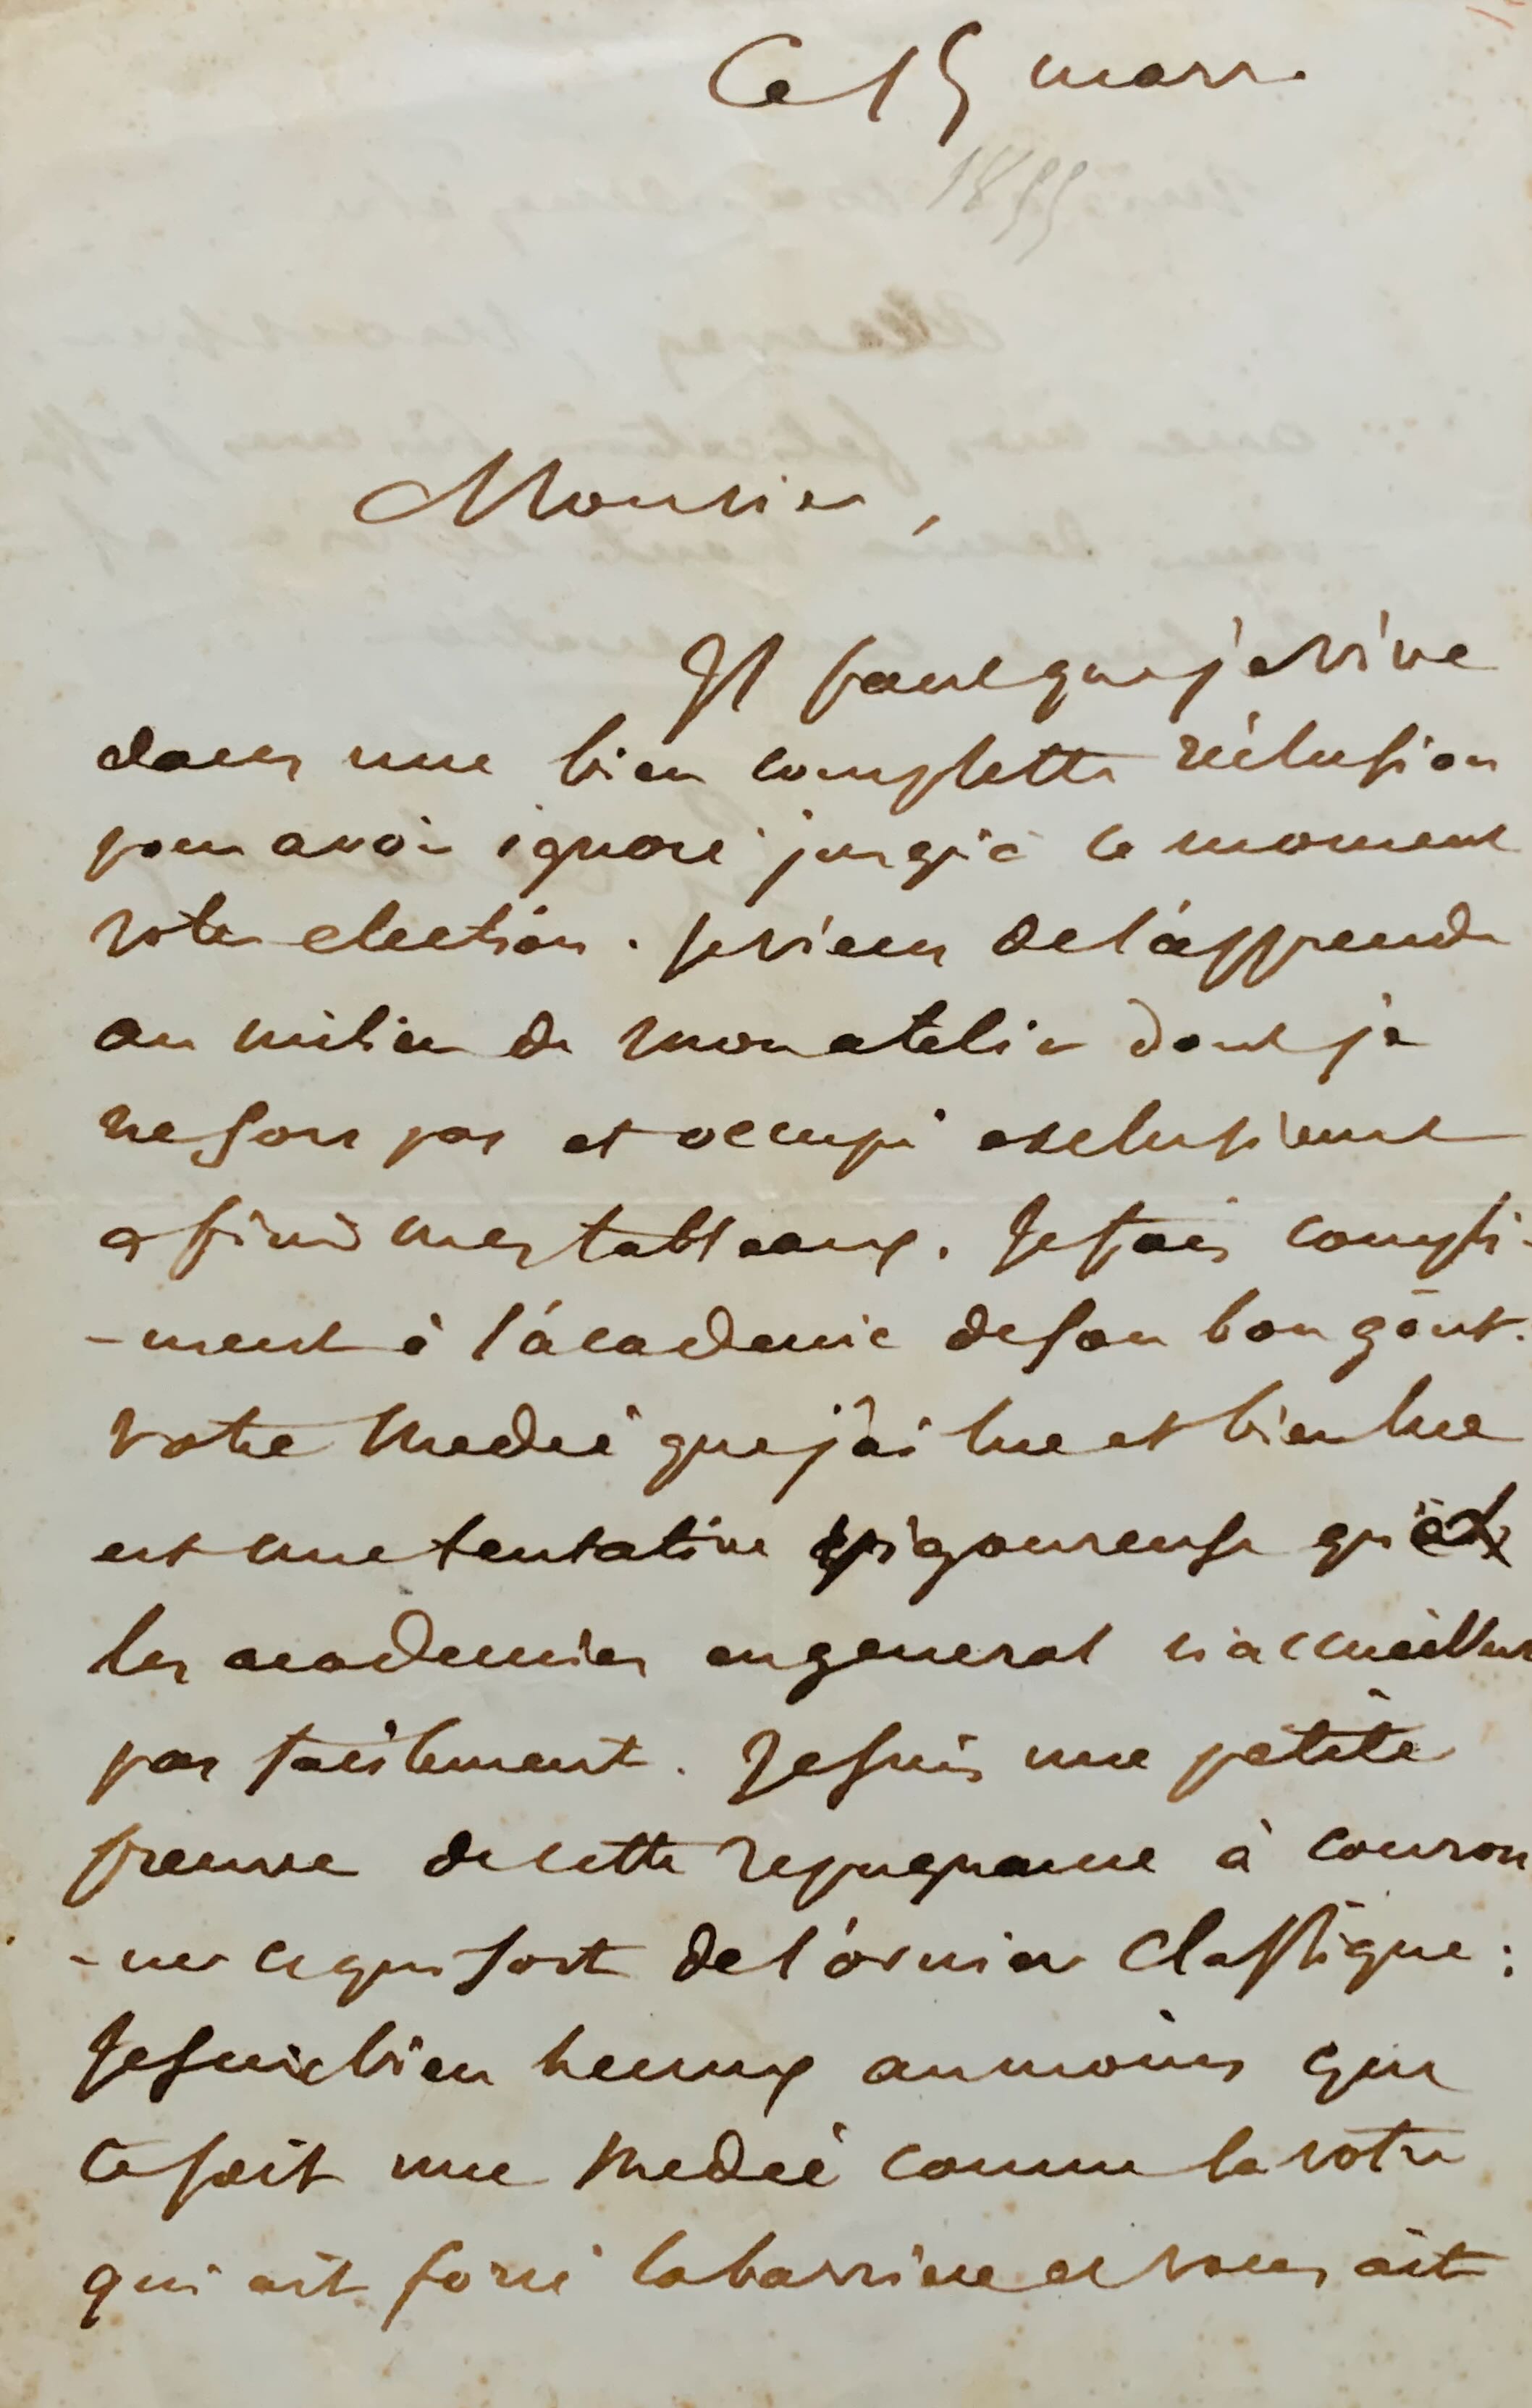 Ce 15 mars.
1855
Monsieur,
Il faut que je vive
dans une bien complette réclusion
pour avoir ignoré jusqu'à ce moment
votre election. Je viens de l'apprendre
au milieu de mon atelier dont je
ne sors pas et occupé exclusivement
a finir mes tableaux. Je fais compli-
-ment à l'academie de son bon goût.
votre Medée que j'ai lue et bien lue
est une tentative vigoureuse que
les academies en general n'accueillent
pas facilement. Je suis une petite
preuve de cette repugnance à couron
-ner ce qui sort de l'ornière classique:
Je suis bien heureux au moins que
ce soit une Medée comme la votre
qui ait forcé la barrière et vous ait